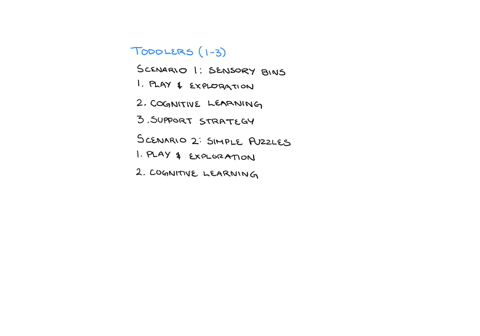 TODDLERS (1-3)
SCENARIO 1: SENSORY BINS
1. PLAY & EXPLORATION
2. COGNITIVE LEARNING
3. SUPPORT STRATEGY
SCENARIO 2: SIMPLE PUZZLES
1. PLAY & EXPLORATION
2. COGNITIVE LEARNING